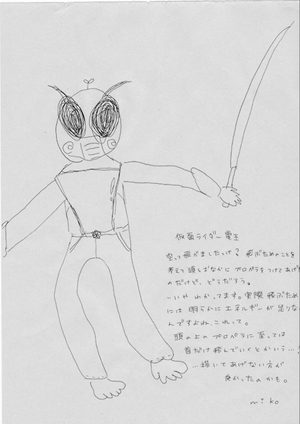 仮面ライダー電王
空って飛べましたっけ？ 飛ぶためのことを
考えて腰しばなかに プロペラをつけてあげた
のだけど、どうだろう。
ーいや わかってます。実際 飛ぶため
には 明らかに エネルギーが 足りな
んですよね、これって。
頭の上の プロペラに至っては
首だけ飛んでいくとかいう…！
…描いてあげない方が
良かったのかも。
miko